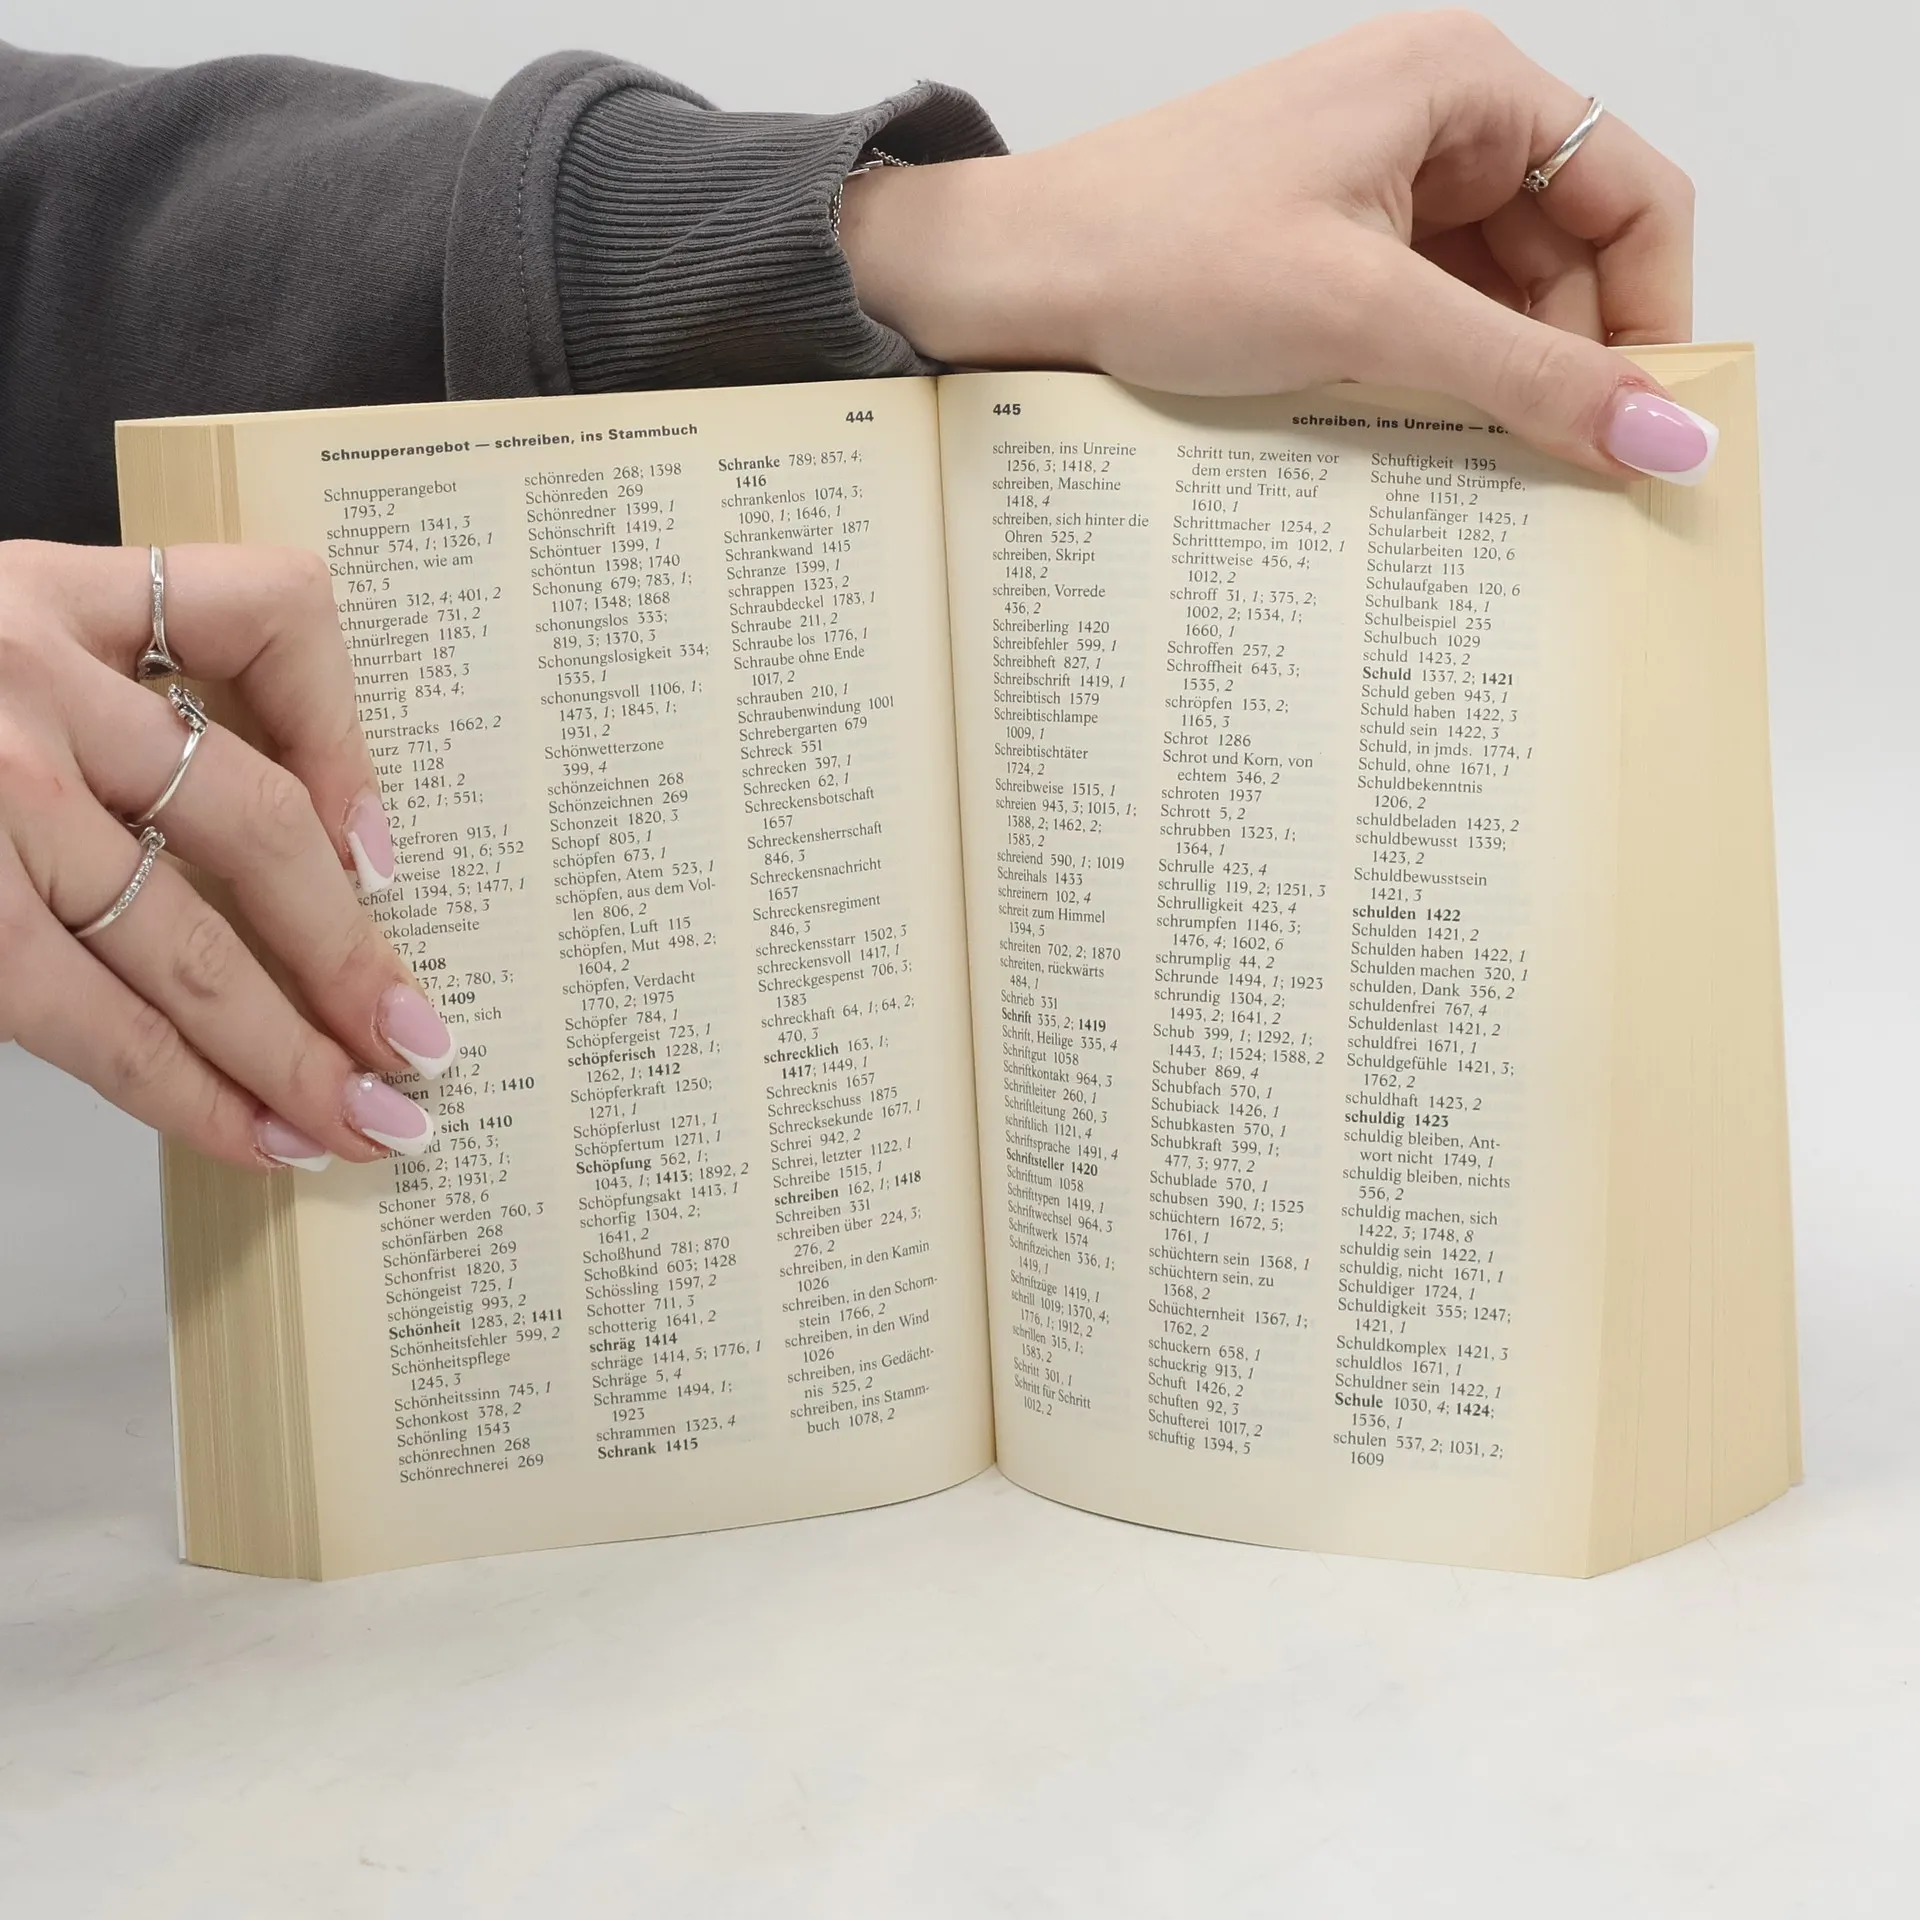 Schnupperangebot — schreiben, ins Stammbuch
444
Schnupperangebot
1793, 2
schnuppern 1341, 3
Schnur 574, 1; 1326, 1
Schnürchen, wie am
767, 5
312, 4; 401, 2
731, 2
1183, 1
187
1583, 3
834, 4;
1251, 3
1662, 2
771, 5
1128
1481, 2
62, 1; 551;
913, 1
91, 6; 552
1822, 1
1394, 5; 1477, 1
758, 3
1408
2; 780, 3;
1409
sich
940
1246, 1; 1410
268
sich 1410
756, 3;
1106, 2; 1473, 1;
1845, 2; 1931, 2
Schoner 578, 6
schöner werden 760, 3
schönfärben 268
Schönfärberei 269
Schonfrist 1820, 3
Schöngeist 725, 1
schöngeistig 993, 2
Schönheit 1283, 2; 1411
Schönheitsfehler 599, 2
Schönheitspflege
1245, 3
Schönheitssinn 745, 1
Schonkost 378, 2
Schönling 1543
schönrechnen 268
Schönrechnerei 269
schönreden 268; 1398
Schönreden 269
Schönredner 1399, 1
Schönschrift 1419, 2
Schöntuer 1399, 1
schöntun 1398; 1740
Schonung 679; 783, 1;
1107; 1348; 1868
schonungslos 333;
819, 3; 1370, 3
Schonungslosigkeit 334;
1535, 1
schonungsvoll 1106, 1;
1473, 1; 1845, 1;
1931, 2
Schönwetterzone
399, 4
schönzeichnen 268
Schönzeichnen 269
Schonzeit 1820, 3
Schopf 805, 1
schöpfen 673, 1
schöpfen, Atem 523, 1
schöpfen, aus dem Vol-
len 806, 2
schöpfen, Luft 115
schöpfen, Mut 498, 2;
1604, 2
schöpfen, Verdacht
1770, 2; 1975
Schöpfer 784, 1
Schöpfergeist 723, 1
schöpferisch 1228, 1;
1262, 1; 1412
Schöpferkraft 1250;
1271, 1
Schöpferlust 1271, 1
Schöpfertum 1271, 1
Schöpfung 562, 1;
1043, 1; 1413; 1892, 2
Schöpfungsakt 1413, 1
schorfig 1304, 2;
1641, 2
Schoßhund 781; 870
Schoßkind 603; 1428
Schössling 1597, 2
Schotter 711, 3
schotterig 1641, 2
schräg 1414
schräge 1414, 5; 1776, 1
Schräge 5, 4
Schramme 1494, 1;
1923
schrammen 1323, 4
Schrank 1415
Schranke 789; 857, 4;
1416
schrankenlos 1074, 3;
1090, 1; 1646, 1
Schrankenwärter 1877
Schrankwand 1415
Schranze 1399, 1
schrappen 1323, 2
Schraubdeckel 1783, 1
Schraube 211, 2
Schraube los 1776, 1
Schraube ohne Ende
1017, 2
schrauben 210, 1
Schraubenwindung 1001
Schrebergarten 679
Schreck 551
schrecken 397, 1
Schrecken 62, 1
Schreckensbotschaft
1657
Schreckensherrschaft
846, 3
Schreckensnachricht
1657
Schreckensregiment
846, 3
schreckensstarr 1502, 3
schreckensvoll 1417, 1
Schreckgespenst 706, 3;
1383
schreckhaft 64, 1; 64, 2;
470, 3
schrecklich 163, 1;
1417; 1449, 1
Schrecknis 1657
Schreckschuss 1875
Schrecksekunde 1677, 1
Schrei 942, 2
Schrei, letzter 1122, 1
Schreibe 1515, 1
schreiben 162, 1; 1418
Schreiben 331
schreiben über 224, 3;
276, 2
schreiben, in den Kamin
1026
schreiben, in den Schorn-
stein 1766, 2
schreiben, in den Wind
1026
schreiben, ins Gedächt-
nis 525, 2
schreiben, ins Stamm-
buch 1078, 2
445
schreiben, ins Unreine —
schreiben, ins Unreine
1256, 3; 1418, 2
schreiben, Maschine
1418, 4
schreiben, sich hinter die
Ohren 525, 2
schreiben, Skript
1418, 2
schreiben, Vorrede
436, 2
Schreiberling 1420
Schreibfehler 599, 1
Schreibheft 827, 1
Schreibschrift 1419, 1
Schreibtisch 1579
Schreibtischlampe
1009, 1
Schreibtischtäter
1724, 2
Schreibweise 1515, 1
schreien 943, 3; 1015, 1;
1388, 2; 1462, 2;
1583, 2
schreiend 590, 1; 1019
Schreihals 1433
schreinern 102, 4
schreit zum Himmel
1394, 5
schreiten 702, 2; 1870
schreiten, rückwärts
484, 1
Schrieb 331
Schrift 335, 2; 1419
Schrift, Heilige 335, 4
Schriftgut 1058
Schriftkontakt 964, 3
Schriftleiter 260, 1
Schriftleitung 260, 3
schriftlich 1121, 4
Schriftsprache 1491, 4
Schriftsteller 1420
Schrifttum 1058
Schrifttypen 1419, 1
Schriftwechsel 964, 3
Schriftwerk 1574
Schriftzeichen 336, 1;
1419, 1
Schriftzüge 1419, 1
schrill 1019; 1370, 4;
1776, 1; 1912, 2
schrillen 315, 1;
1583, 2
Schritt 301, 1
Schritt für Schritt
1012, 2
Schritt tun, zweiten vor
dem ersten 1656, 2
Schritt und Tritt, auf
1610, 1
Schrittmacher 1254, 2
Schritttempo, im 1012, 1
schrittweise 456, 4;
1012, 2
schroff 31, 1; 375, 2;
1002, 2; 1534, 1;
1660, 1
Schroffen 257, 2
Schroffheit 643, 3;
1535, 2
schröpfen 153, 2;
1165, 3
Schrot 1286
Schrot und Korn, von
echtem 346, 2
schroten 1937
Schrott 5, 2
schrubben 1323, 1;
1364, 1
Schrulle 423, 4
schrullig 119, 2; 1251, 3
Schrulligkeit 423, 4
schrumpfen 1146, 3;
1476, 4; 1602, 6
schrumplig 44, 2
Schrunde 1494, 1; 1923
schrundig 1304, 2;
1493, 2; 1641, 2
Schub 399, 1; 1292, 1;
1443, 1; 1524; 1588, 2
Schuber 869, 4
Schubfach 570, 1
Schubiack 1426, 1
Schubkasten 570, 1
Schubkraft 399, 1;
477, 3; 977, 2
Schublade 570, 1
schubsen 390, 1; 1525
schüchtern 1672, 5;
1761, 1
schüchtern sein 1368, 1
schüchtern sein, zu
1368, 2
Schüchternheit 1367, 1;
1762, 2
schuckern 658, 1
schuckrig 913, 1
Schuft 1426, 2
schuften 92, 3
Schufterei 1017, 2
schuftig 1394, 5
Schuftigkeit 1395
Schuhe und Strümpfe,
ohne 1151, 2
Schulanfänger 1425, 1
Schularbeit 1282, 1
Schularbeiten 120, 6
Schularzt 113
Schulaufgaben 120, 6
Schulbank 184, 1
Schulbeispiel 235
Schulbuch 1029
schuld 1423, 2
Schuld 1337, 2; 1421
Schuld geben 943, 1
Schuld haben 1422, 3
schuld sein 1422, 3
Schuld, in jmds. 1774, 1
Schuld, ohne 1671, 1
Schuldbekenntnis
1206, 2
schuldbeladen 1423, 2
schuldbewusst 1339;
1423, 2
Schuldbewusstsein
1421, 3
schulden 1422
Schulden 1421, 2
Schulden haben 1422, 1
Schulden machen 320, 1
schulden, Dank 356, 2
schuldenfrei 767, 4
Schuldenlast 1421, 2
schuldfrei 1671, 1
Schuldgefühle 1421, 3;
1762, 2
schuldhaft 1423, 2
schuldig 1423
schuldig bleiben, Ant-
wort nicht 1749, 1
schuldig bleiben, nichts
556, 2
schuldig machen, sich
1422, 3; 1748, 8
schuldig sein 1422, 1
schuldig, nicht 1671, 1
Schuldiger 1724, 1
Schuldigkeit 355; 1247;
1421, 1
Schuldkomplex 1421, 3
schuldlos 1671, 1
Schuldner sein 1422, 1
Schule 1030, 4; 1424;
1536, 1
schulen 537, 2; 1031, 2;
1609